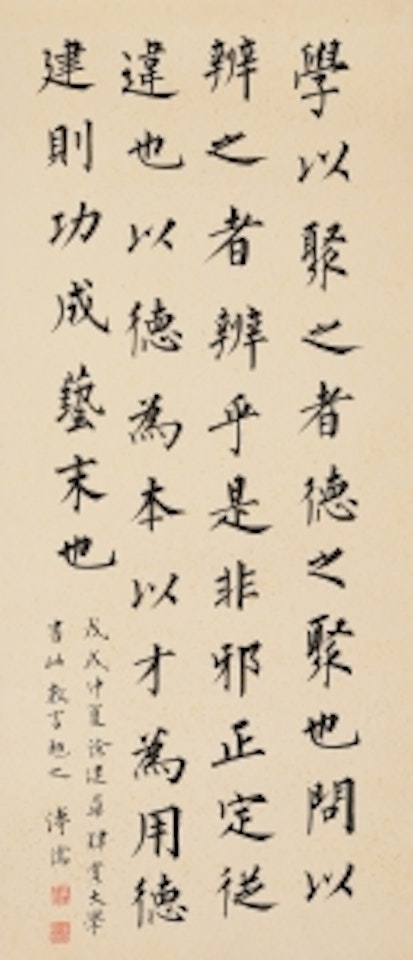 學以聚之者德之聚也問以
辨之者辨乎是非邪正定從
違也以德為本以才為用德
建則功成藝末也
戊戌仲夏徐建華肄業大學
書此數言勉之 溥儒